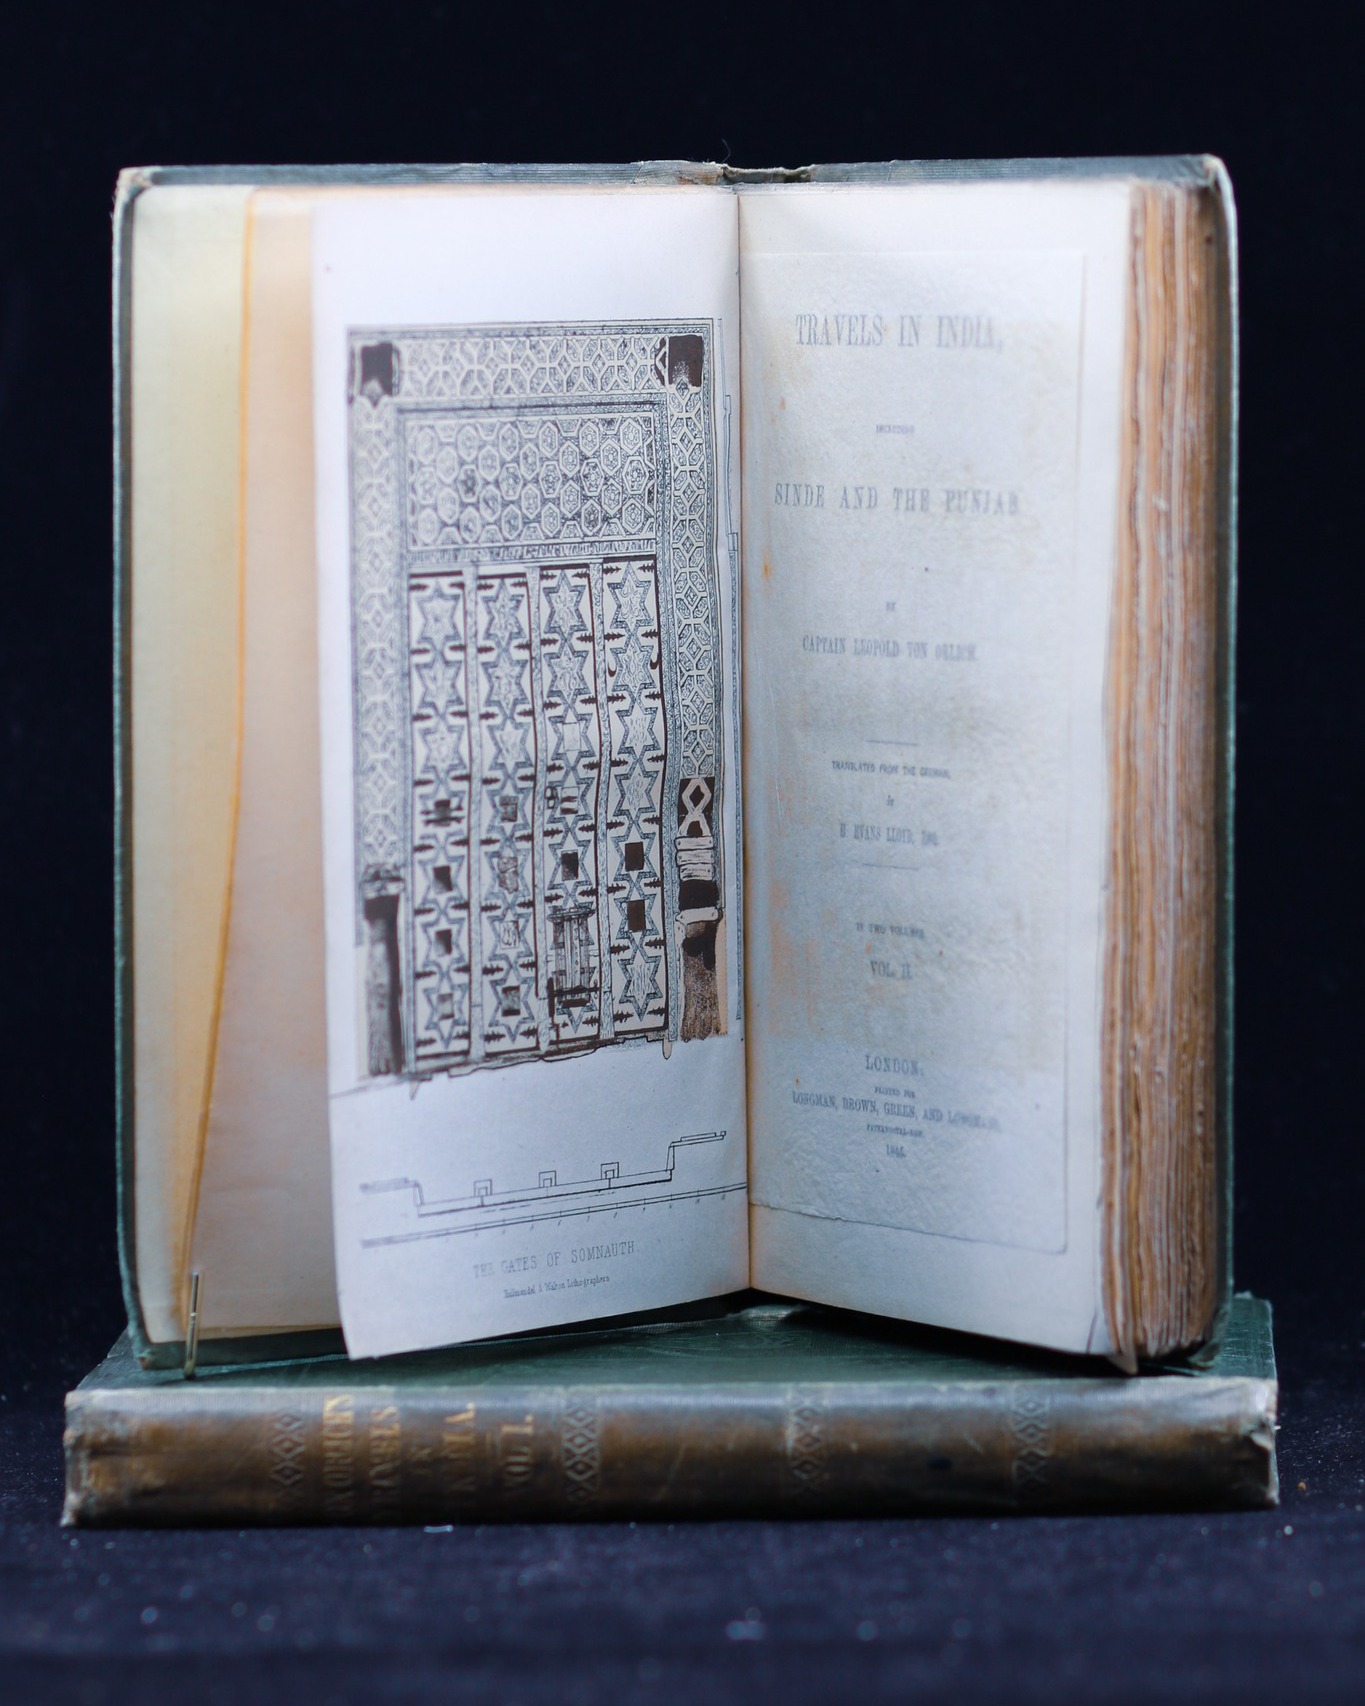 THE GATES OF SOMNAUTH.
Hullmandel & Walton Lithographers
TRAVELS IN INDIA,
INCLUDING
SINDE AND THE PUNJAB
BY
CAPTAIN LEOPOLD VON ORLICH.
TRANSLATED FROM THE GERMAN,
by
H. EVANS LLOYD, ESQ.
IN TWO VOLUMES.
VOL. II.
LONDON:
PRINTED FOR
LONGMAN, BROWN, GREEN, AND LONGMANS,
PATERNOSTER-ROW.
1845.
TRAVELS
IN
INDIA.
VOL. I.